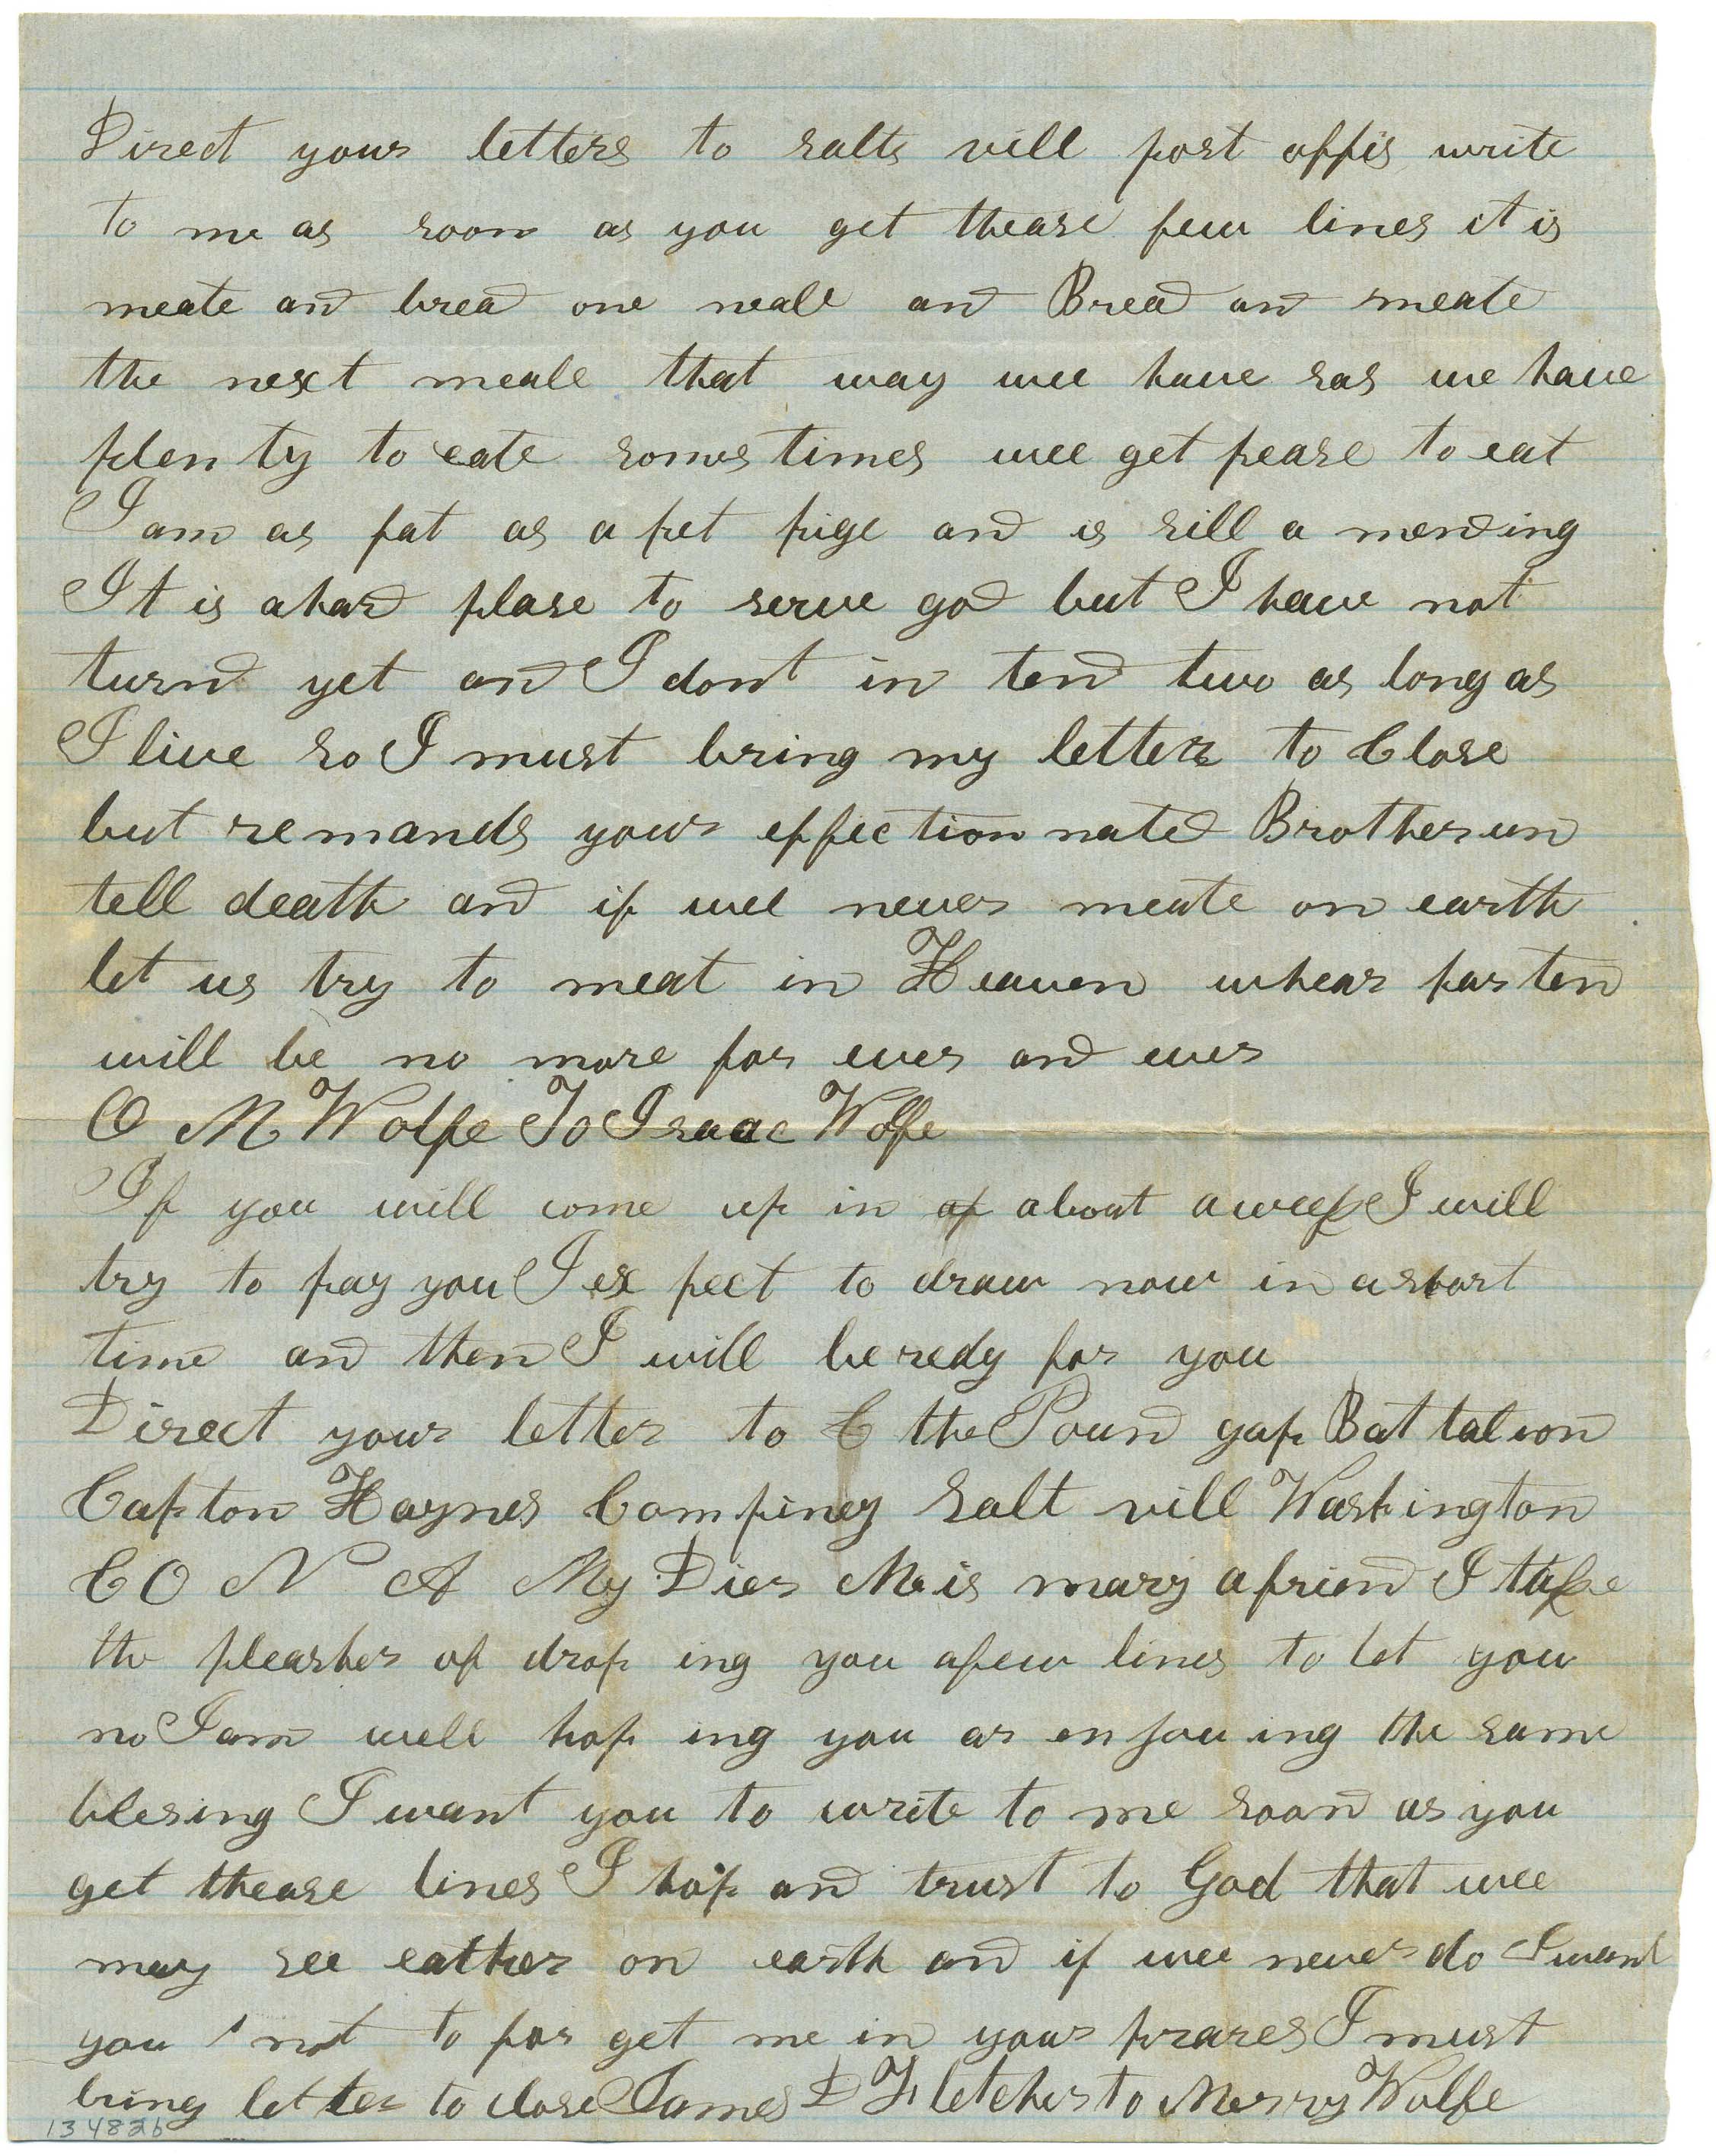 Direct your letters to salts vill post offis write
to me as soon as you get thease few lines it is
meate and bread one meale and Bread and meate
the next meale that way wee have sas we have
plen ty to eate somes times wee get pease to eat
I am as fat as a pet pige and is sill a mending
It is a hard plase to serve god but I have not
turnd yet and I dont in tend two as long as
I live so I must bring my letter to Close
but remands your effec tion nated Brother un
tell death and if wee never meate on earth
let us try to meat in Heaven whear parten
will be no more for ever and ever
O M Wolfe To Isaac Wolfe
If you will come up in of about a week I will
try to pay you I ex pect to draw now in a short
time and then I will be redy for you
Direct your letter to C the Pound gap Bat talion
Capton Haynes Compiney Salt vill Washington
CO V A My Dier Mis mary a friend I take
the pleasher of drop ing you a few lines to let you
no I am well hop ing you ar en jou ing the same
blesing I want you to write to me soon as you
get thease lines I hop and trust to God that wee
may see eather on earth and if wee never do I want
you not to for get me in your prares I must
bring letter to close James D Fletcher to Merry Wolfe
134826